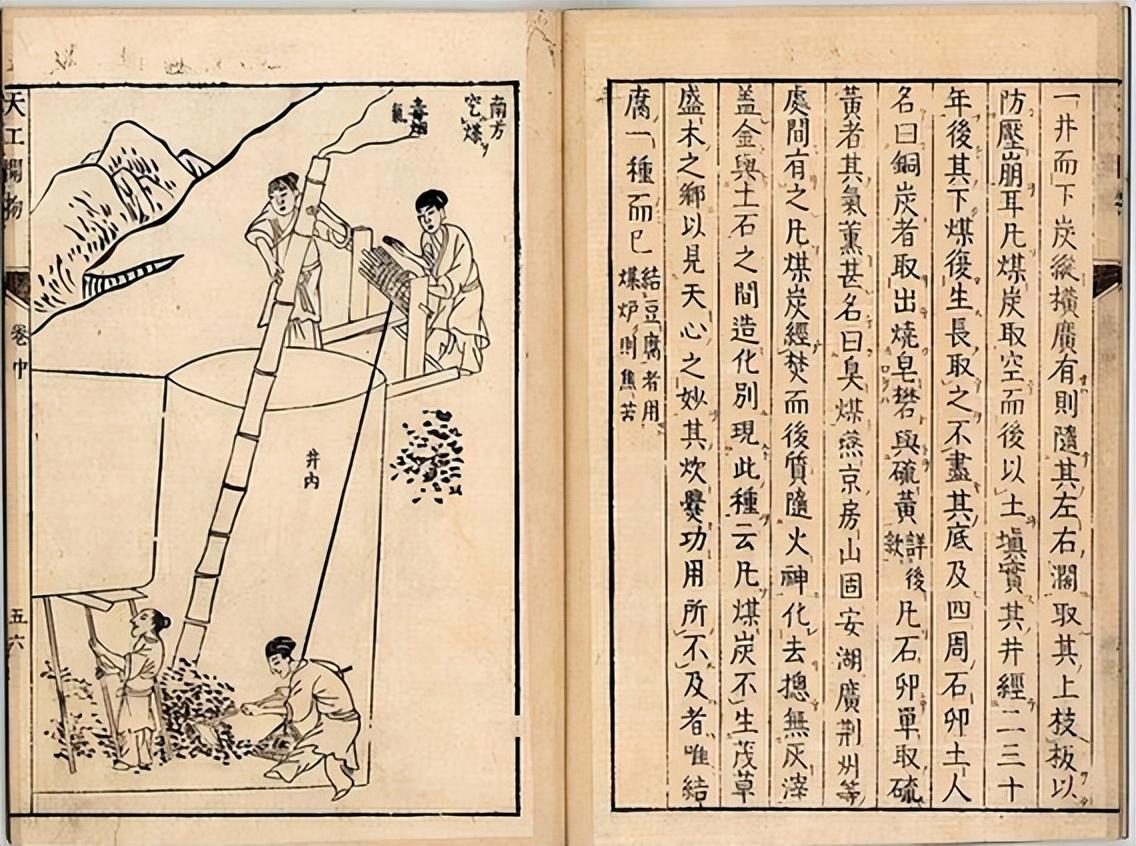 一井而下炭縱橫廣有則隨其左右濶取其上枝板以
防壓崩耳凡煤炭取空而後以土填實其井經二三十
年後其下煤復生長取之不盡其底及四周石卵土人
名曰銅炭者取出燒皂礬與硫黃詳後款凡石卵單取硫
黃者其氣薰甚名曰臭煤燕京房山固安湖廣荊州等
處間有之凡煤炭經焚而後質隨火神化去摠無灰滓
蓋金與土石之間造化別現此種云凡煤炭不生茂草
盛木之鄉以見天心之妙其炊爨功用所不及者唯結
腐一種而已結豆腐者用煤炉則焦苦
南方
穵煤
毒烟
氣
井内
天工開物
卷中
五六